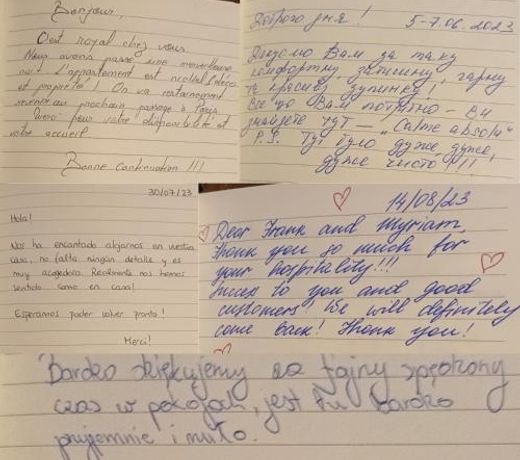 Bonjour,
C'est royal chez vous.
Nous avons passé une merveilleuse
nuit. L'appartement est
et propreté ! On va certainement
revenir au prochain passage à Paris.
Merci pour votre disponibilité et
votre accueil.
Bonne continuation !!!
Доброго дня! 5-7.06.2023
Дякуємо Вам за таку
комфортну, затишну, гарну
та красиву зупинку!
Все що Вам потрібно - Ви
знайдете тут — „Calme absolu"
P.S. Тут було дуже дуже,
дуже чисто!!!!
30/07/23
Hola!
Nos ha encantado alojarnos en vuestra
casa, no falta ningún detalle y es
muy acogedora. Realmente nos hemos
sentido como en casa!
Esperamos poder volver pronto!
Merci!
14/08/23
Dear Frank and Myriam,
Thank you so much for
your hospitality!!!
to you and good
customers! We will definitely
come back! Thank you!
Bardzo dziękujemy za fajny spędzony
czas w pokojach, jest tu bardzo
przyjemnie i miło.